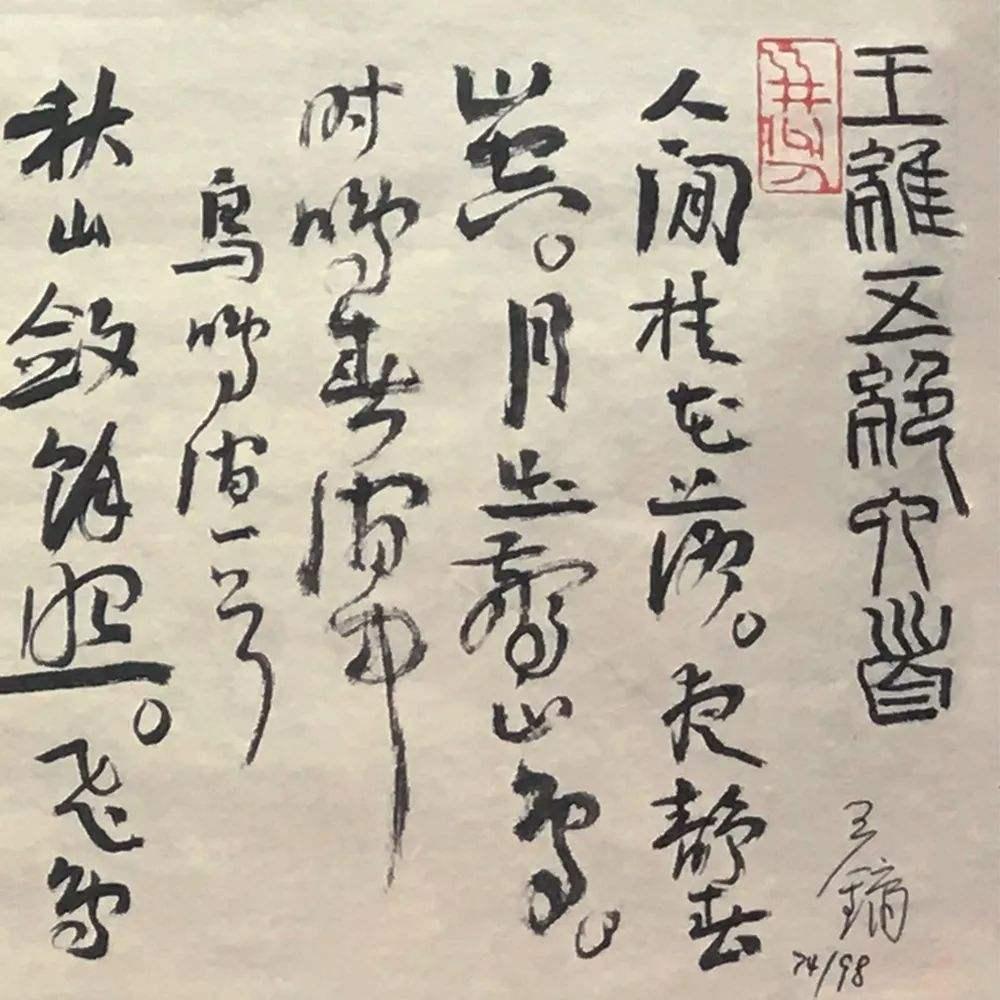 王維五絕六首
王鏞
74/98
人閒桂花落。夜静春
山空。月出驚山鳥。
时鳴春澗中
鳥鳴澗一首
秋山斂餘照。飛鳥